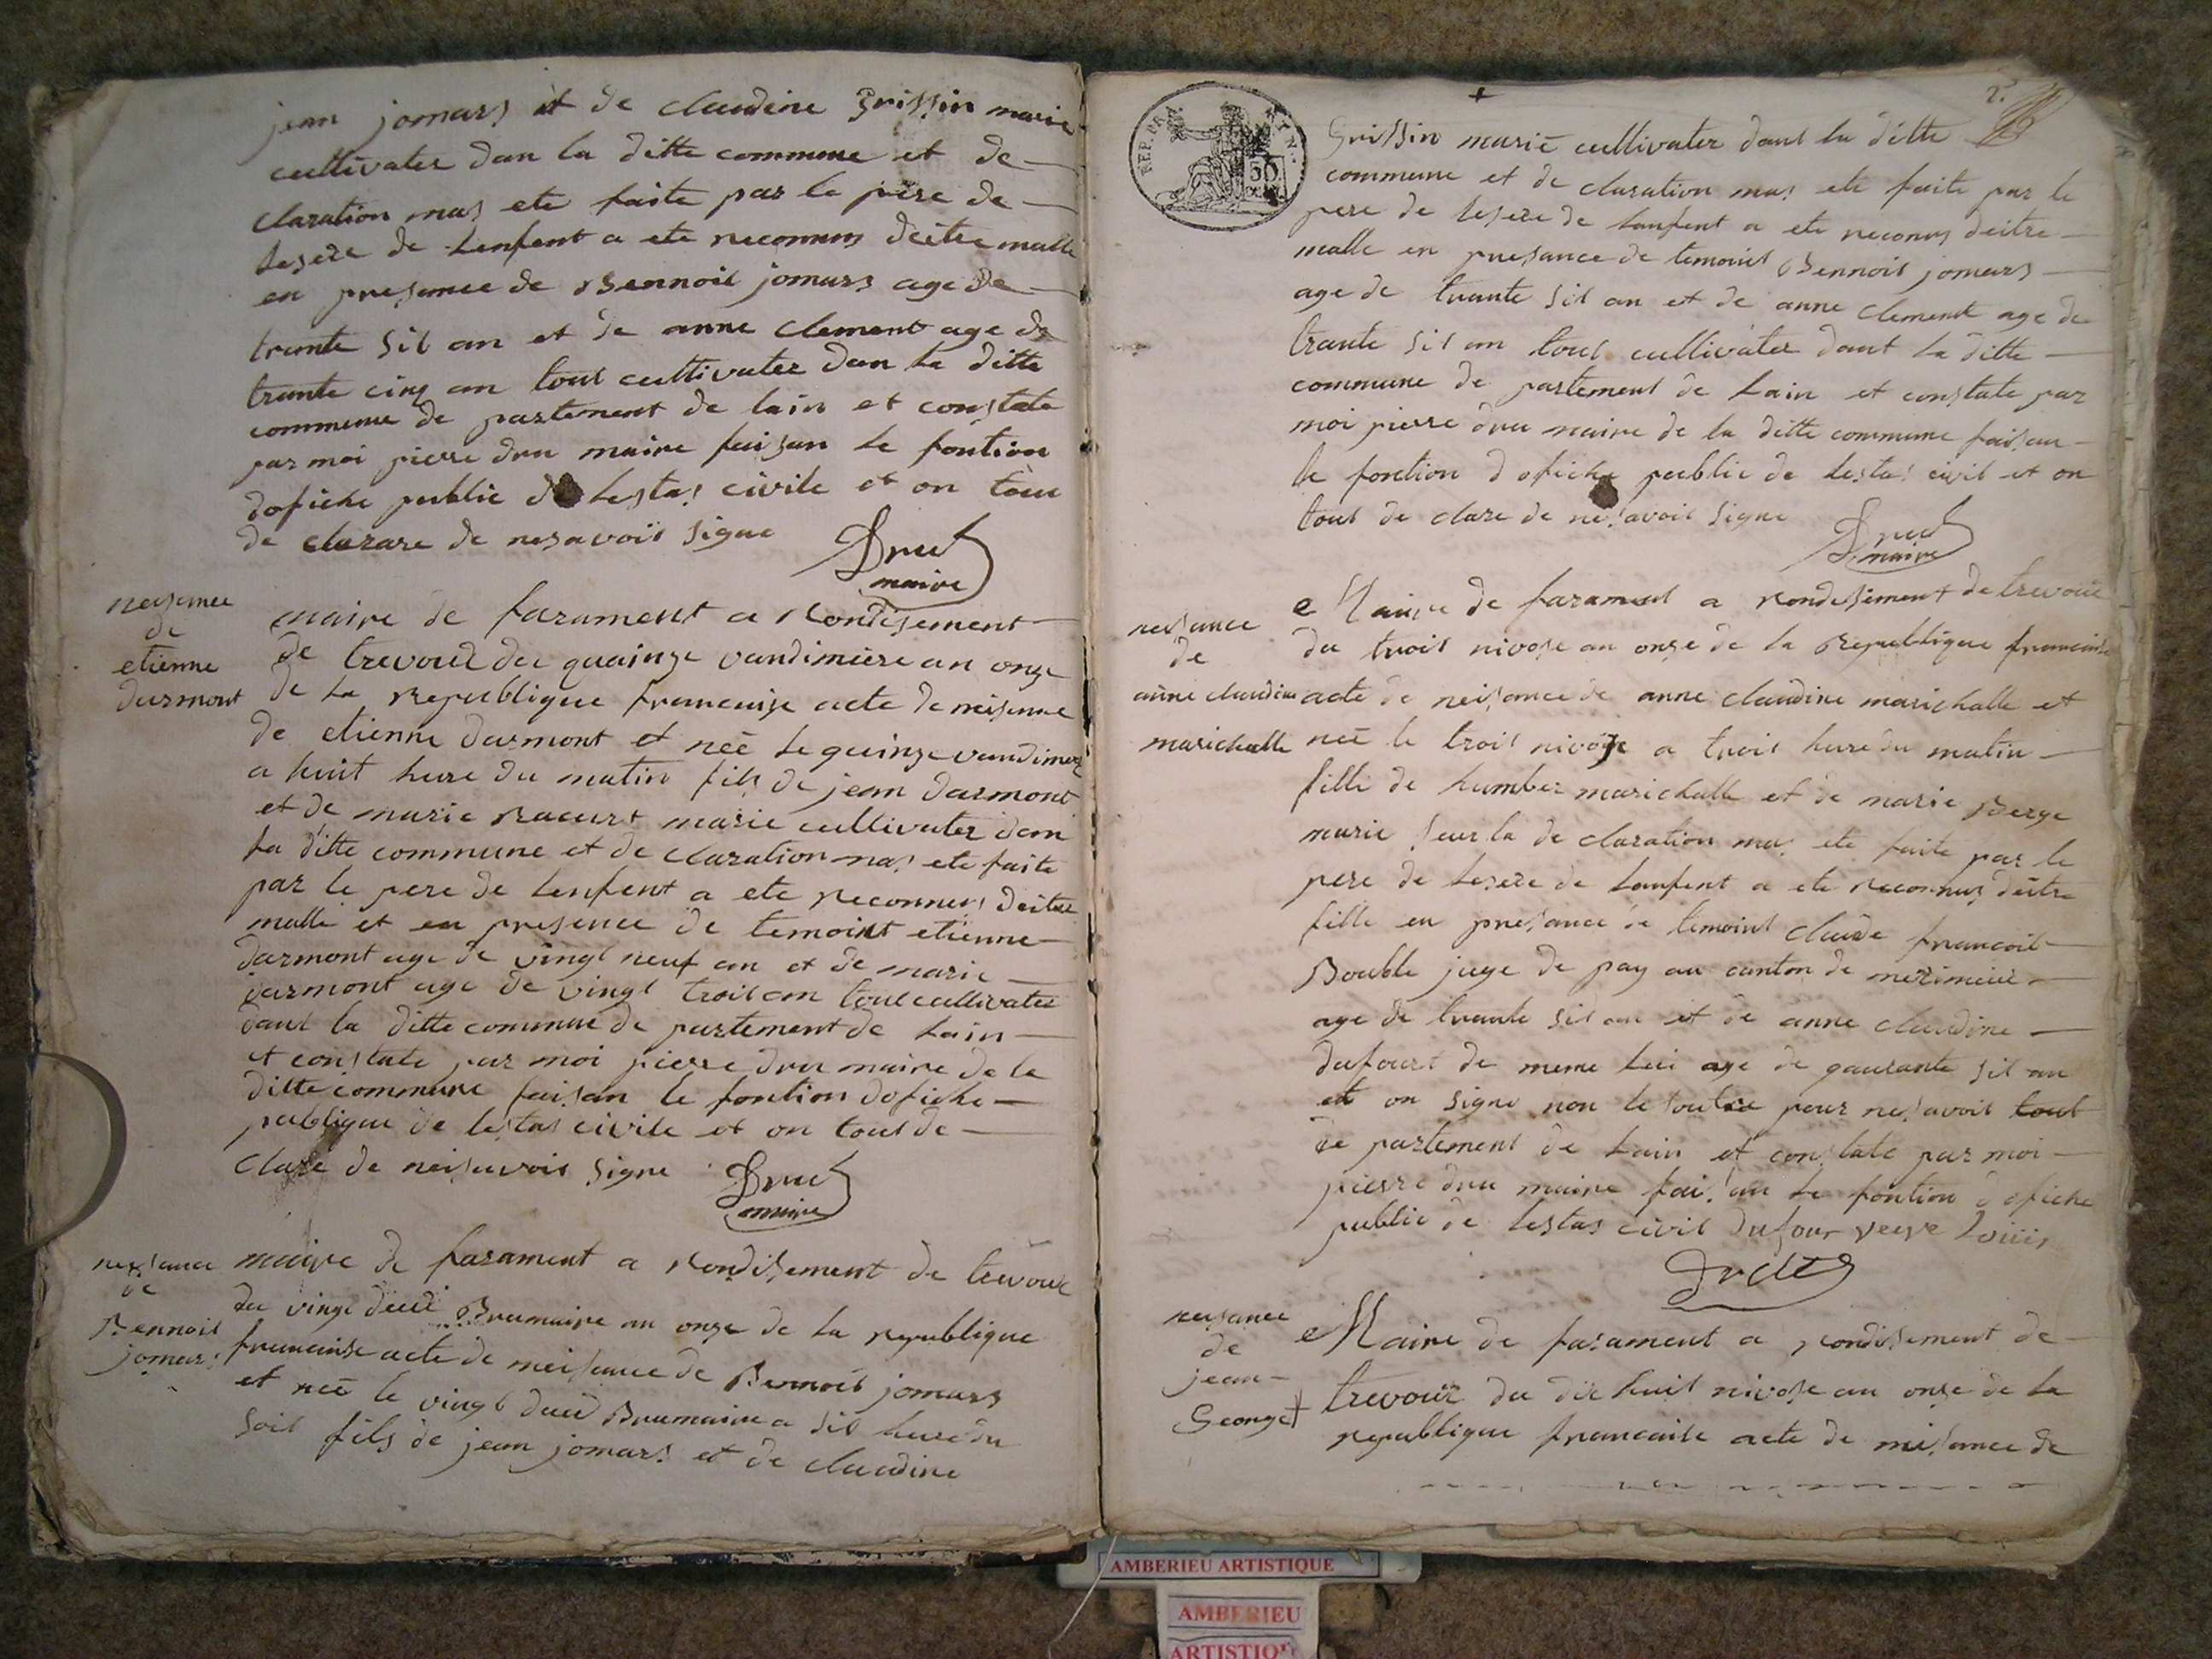 jean jomars et de claudine Grissin marié
cultivater dan la ditte commune et de
claration mas ete faite par le père de
lesere de lenfent a ete reconnus deitre malle
en presance de Bennoit jomars age de
trante sis an et de anne clement age de
trante cinq an tous cultivater dan la ditte
commune de partement de lain et constate
par moi pierre dru maire faisan le fontion
dofiche public de lestas civile et on tous
de clarare de nesavois signe
Dru
maire
neisance
de
etienne
darmont
maire de farament a Rondisement
de trevoux du quainze vandimiere an onze
de la Republique francaise acte de neisance
de etienne darmont et neé le quinze vandimer
a huit heure du matin fils de jean darmont
et de marie Racurt marie cultivater dan
la ditte commune et de claration mas ete faite
par le pere de lenfent a ete reconnus deitre
malle et en presence de temoint etienne
darmont age de vingt neuf an et de marie
darmont age de vingt trois an tous cultivater
dans la ditte commune de partement de Lain
et constate par moi pierre dru maire de la
ditte commune faisan le fontion dofiche
publique de lestas civile et on tous de
clare de neisavois signe
Dru
maire
neissance
de
Bennoit
jomars
maire de farament a Rondisement de trevoux
du vingt deux Brumaire an onze de la republique
francaise acte de neisance de Bennoit jomars
et neé le vingt deux Brumaire a sis heure du
soit fils de jean jomars et de claudine
REP. FRA
50
Grissin marié cultivater dans la ditte
commune et de claration mas ete faite par le
pere de lesere de lanfent a ete reconus deitre
malle en presance de temoint Bennoit jomars
age de trante sis an et de anne clement age de
trante sis an tous cultivater dant la ditte
commune de partement de Lain et constate par
moi pierre dru maire de la ditte commune faisan
le fontion d ofiche public de lestas civil et on
tous de clare de ne savoir signe
Dru
maire
neisance
de
anne claudine
marichalle
Maire de farament a rondisement de trevoux
du trois nivose an onze de la Republique francaise
acte de neisance de anne claudine marichalle et
neé le trois nivose a trois heure du matin
fille de humber marichalle et de marie Berge
marie seur la de claration mas ete faite par le
pere de lesere de lanfent a ete reconnus deitre
fille en presance de temoint claude francois
Bouble juge de pay au canton de
age de trante sis an et de anne claudine
dufourt de meme lui age de qaurante sis an
et on signe non le pour ne savoir tout
de partement de Lain et constate par moi
pierre dru maire faisan le fontion d ofiche
public de lestas civil dufour veuve
neisance
de
jean
George
Maire de farament a rondisement de
trevoux du dix huit nivose an onze de la
republique francaise acte de neisance de
AMBERIEU ARTISTIQUE
AMBERIEU
ARTISTIQ